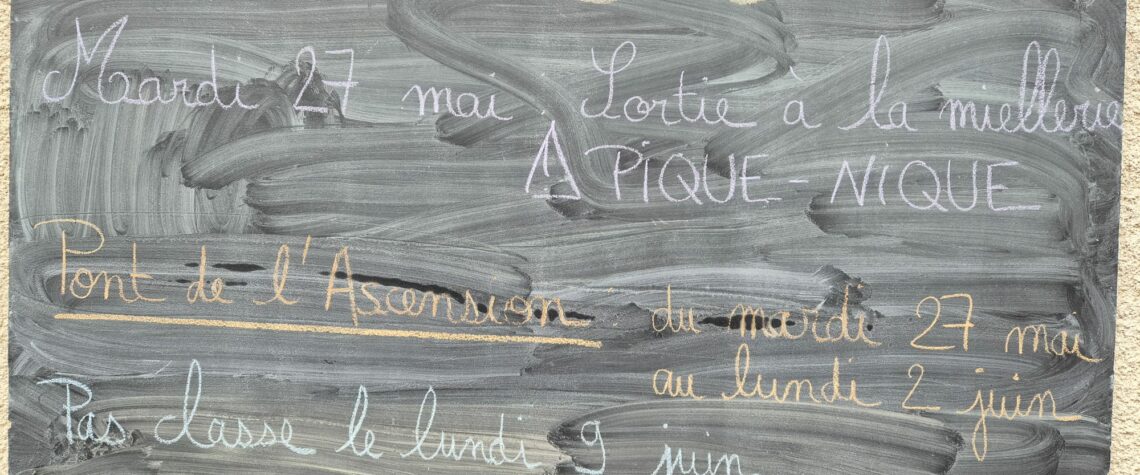 Mardi 27 mai : Sortie à la miellerie
⚠ PIQUE-NIQUE
Pont de l'Ascension : du mardi 27 mai
au lundi 2 juin
Pas classe le lundi 9 juin